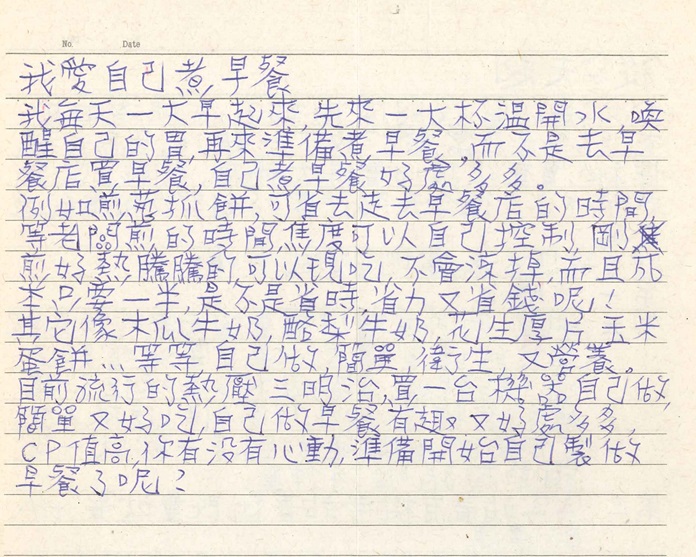 No. Date
我愛自己煮早餐
我每天一大早起來,先來一大杯溫開水喚
醒自己的胃,再來準備煮早餐,而不是去早
餐店買早餐,自己煮早餐好處多多。
例如煎蔥抓餅,可省去走去早餐店的時間,
等老闆煎的時間焦度可以自己控制,剛
煎好熱騰騰的可以現吃,不會涼掉,而且成
本只要一半,是不是省時省力又省錢呢!
其它像木瓜牛奶,酪梨牛奶,花生厚片玉米
蛋餅…等等自己做,簡單,衛生,又營養。
目前流行的熱壓三明治,買一台機器自己做
簡單又好吃,自己做早餐有趣又好處多多,
CP值高,你有没有心動,準備開始自己製做
早餐了呢?